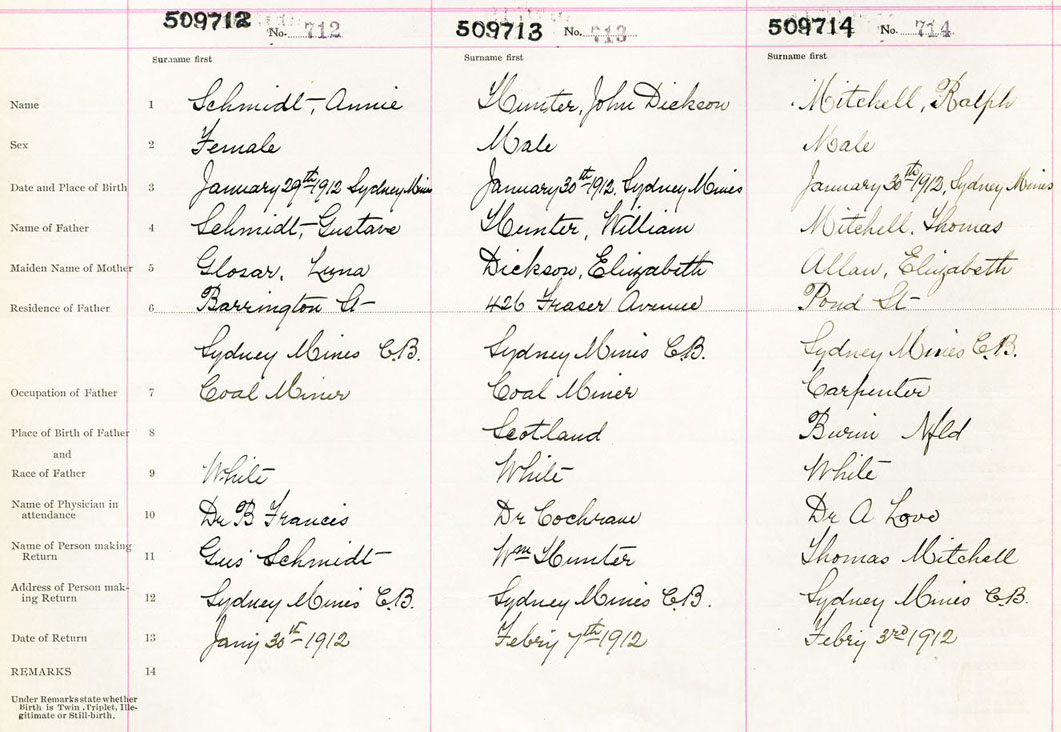 509712 No. 712 509713 No. 713 509714 No. 714
Surname first Surname first Surname first
Name 1 Schmidt, Annie Hunter, John Dickson Mitchell, Ralph
Sex 2 Female Male Male
Date and Place of Birth 3 January 29th 1912 Sydney Mines January 30th 1912, Sydney Mines January 30th 1912, Sydney Mines
Name of Father 4 Schmidt, Gustave Hunter, William Mitchell, Thomas
Maiden Name of Mother 5 Glosar, Luna Dickson, Elizabeth Allan, Elizabeth
Residence of Father 6 Barrington St 426 Fraser Avenue Pond St
Sydney Mines C.B. Sydney Mines C.B. Sydney Mines C.B.
Occupation of Father 7 Coal Miner Coal Miner Carpenter
Place of Birth of Father 8 Scotland Burin Nfld
and
Race of Father 9 White White White
Name of Physician in
attendance 10 Dr B Francis Dr Cochrane Dr A Love
Name of Person making
Return 11 Gus Schmidt Wm Hunter Thomas Mitchell
Address of Person mak-
ing Return 12 Sydney Mines C.B. Sydney Mines C.B. Sydney Mines C.B.
Date of Return 13 Jany 30th 1912 Febry 7th 1912 Febry 3rd 1912
REMARKS 14
Under Remarks state whether
Birth is Twin, Triplet, Ille-
gitimate or Still-birth.